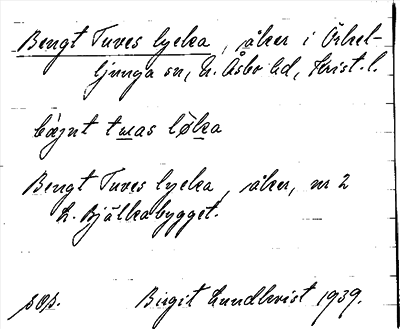 Bengt Tuves lycka, åker i Örkel-
ljunga sn, N. Åsbo hd, Krist. l.
bæŋt tuas løka
Bengt Tuves lycka, åker, nr 2
L. Bjälkabygget.
sop. Birgit Lundkvist 1939.